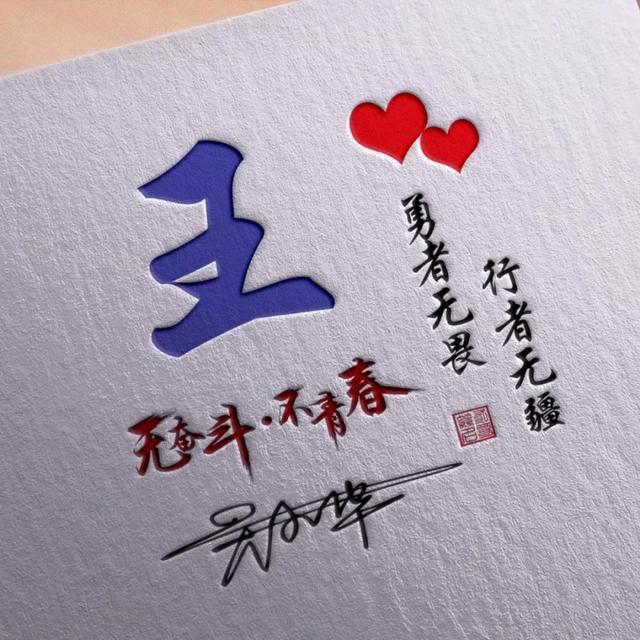 王
勇者无畏
行者无疆
无奋斗·不青春